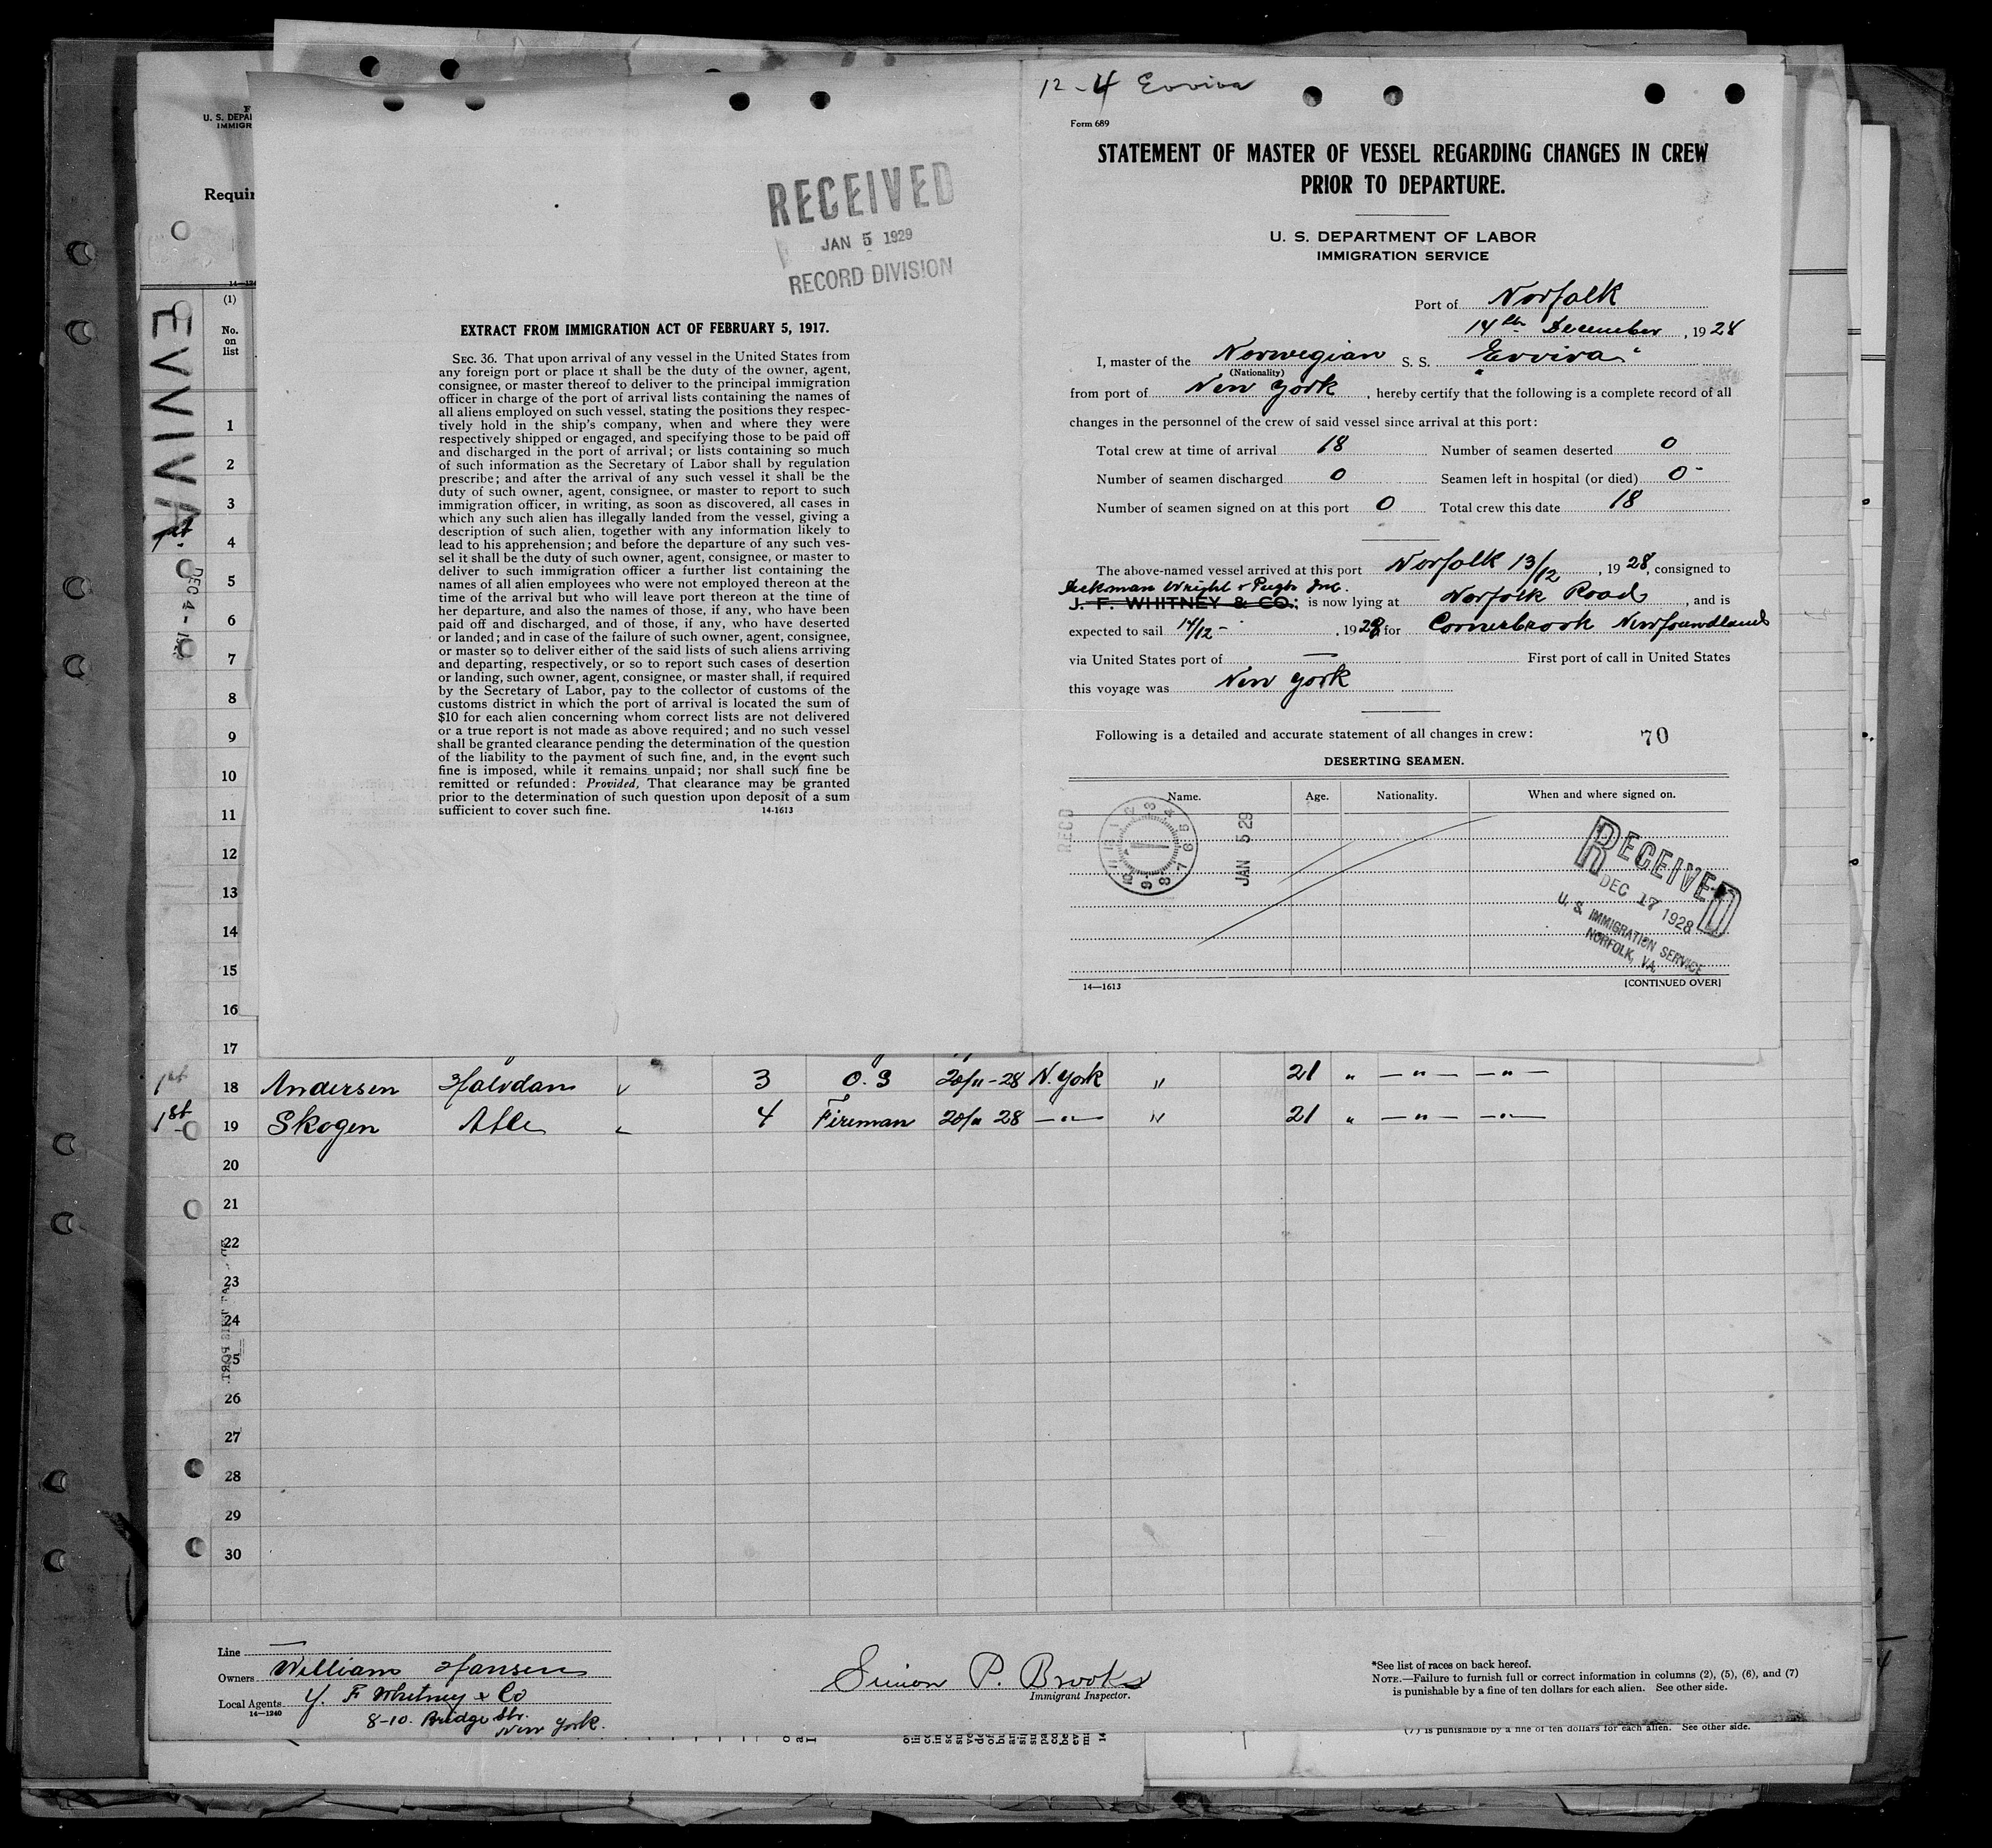 12-4 Evviva
Form 689
STATEMENT OF MASTER OF VESSEL REGARDING CHANGES IN CREW
PRIOR TO DEPARTURE.
U. S. DEPARTMENT OF LABOR
IMMIGRATION SERVICE
Port of Norfolk
14th December, 1928
I, master of the Norwegian S. S. "Evviva"
(Nationality)
from port of New York, hereby certify that the following is a complete record of all
changes in the personnel of the crew of said vessel since arrival at this port:
Total crew at time of arrival 18 Number of seamen deserted 0
Number of seamen discharged 0 Seamen left in hospital (or died) 0-
Number of seamen signed on at this port 0 Total crew this date 18
The above-named vessel arrived at this port Norfolk 13/12, 1928, consigned to
Wright & Pugh Inc.
J. F. WHITNEY & CO.; is now lying at Norfolk Road, and is
expected to sail 14/12 -, 1928 for Cornerbrook Newfoundland
via United States port of — First port of call in United States
this voyage was New York
Following is a detailed and accurate statement of all changes in crew:
70
DESERTING SEAMEN.
Name. Age. Nationality. When and where signed on.
RECD
JAN 5 29
RECEIVED
DEC 17 1928
U. S. IMMIGRATION SERVICE
NORFOLK, VA.
14—1613
[CONTINUED OVER]
RECEIVED
JAN 5 1929
RECORD DIVISION
EXTRACT FROM IMMIGRATION ACT OF FEBRUARY 5, 1917.
SEC. 36. That upon arrival of any vessel in the United States from
any foreign port or place it shall be the duty of the owner, agent,
consignee, or master thereof to deliver to the principal immigration
officer in charge of the port of arrival lists containing the names of
all aliens employed on such vessel, stating the positions they respec-
tively hold in the ship's company, when and where they were
respectively shipped or engaged, and specifying those to be paid off
and discharged in the port of arrival; or lists containing so much
of such information as the Secretary of Labor shall by regulation
prescribe; and after the arrival of any such vessel it shall be the
duty of such owner, agent, consignee, or master to report to such
immigration officer, in writing, as soon as discovered, all cases in
which any such alien has illegally landed from the vessel, giving a
description of such alien, together with any information likely to
lead to his apprehension; and before the departure of any such ves-
sel it shall be the duty of such owner, agent, consignee, or master to
deliver to such immigration officer a further list containing the
names of all alien employees who were not employed thereon at the
time of the arrival but who will leave port thereon at the time of
her departure, and also the names of those, if any, who have been
paid off and discharged, and of those, if any, who have deserted
or landed; and in case of the failure of such owner, agent, consignee,
or master so to deliver either of the said lists of such aliens arriving
and departing, respectively, or so to report such cases of desertion
or landing, such owner, agent, consignee, or master shall, if required
by the Secretary of Labor, pay to the collector of customs of the
customs district in which the port of arrival is located the sum of
$10 for each alien concerning whom correct lists are not delivered
or a true report is not made as above required; and no such vessel
shall be granted clearance pending the determination of the question
of the liability to the payment of such fine, and, in the event such
fine is imposed, while it remains unpaid; nor shall such fine be
remitted or refunded: Provided, That clearance may be granted
prior to the determination of such question upon deposit of a sum
sufficient to cover such fine.
14-1613
EVVIVA
DEC 4 - 19
(1)
No.
on
list
1
2
3
4
5
6
7
8
9
10
11
12
13
14
15
16
17
1st 18 Andersen Halvdan 3 O. S 20/11-28 N. York " 21 " —"— —"—
1st 19 Skogen Atle 4 Fireman 20/11 28 —"— " 21 " —"— —"—
20
21
22
23
24
25
26
27
28
29
30
Line —
Owners William Hansen
Local Agents J. F Whitney & Co
14—1240
8-10. Bridge Str.
New York.
Simon P. Brooks
Immigrant Inspector.
*See list of races on back hereof.
NOTE.—Failure to furnish full or correct information in columns (2), (5), (6), and (7)
is punishable by a fine of ten dollars for each alien. See other side.
(7) is punishable by a fine of ten dollars for each alien. See other side.